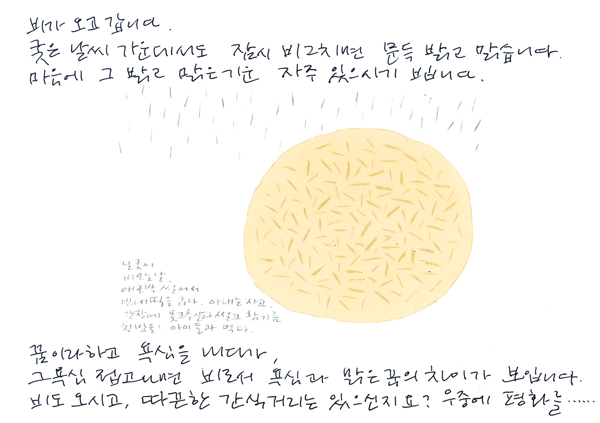 비가 오고 갑니다.
궂은 날씨 가운데서도 잠시 비그치면 문득 밝고 맑습니다.
마음에 그 밝고 맑은기운 자주 있으시기 빕니다.
날궂이
비오는날,
애호박 썰어서
먹다. 아내는 자고,
간장에 풋고추 썰고 참기름
아이들과 먹다.
꿈이라하고 욕심을 내다가,
그욕심 접고나면 비로서 욕심과 맑은 꿈의 차이가 보입니다.
비도 오시고, 따끈한 간식거리는 있으신지요? 우중에 평화를......